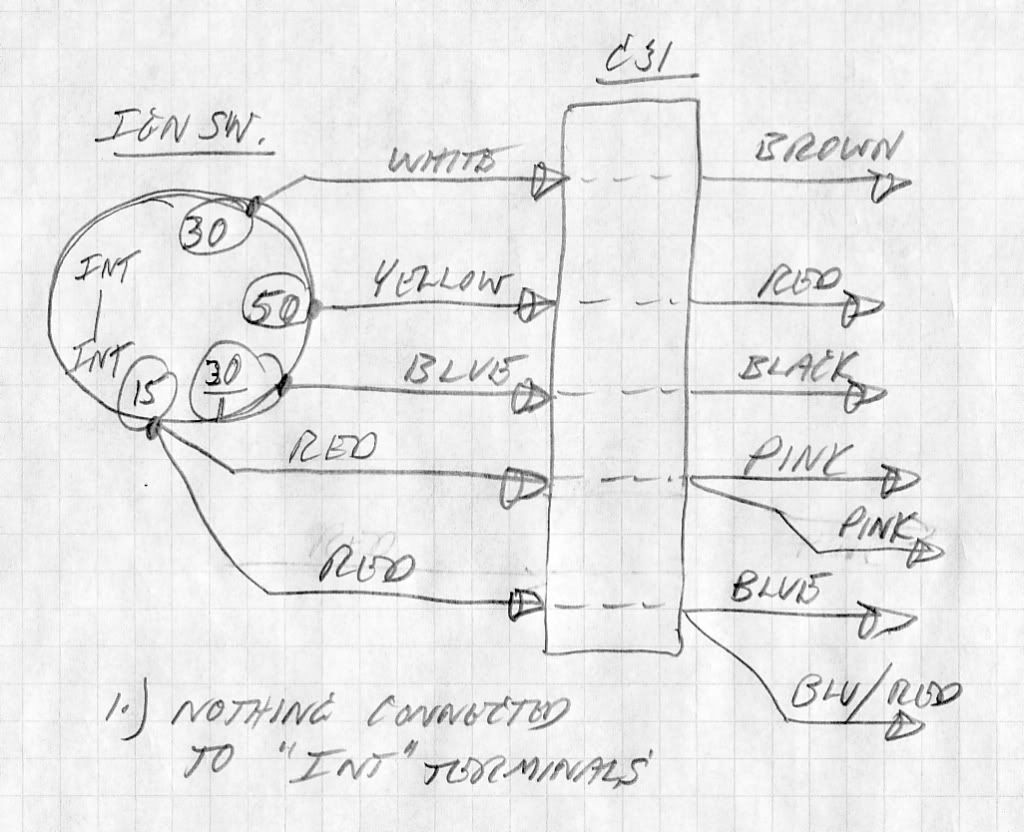 C31
IGN SW.
WHITE
BROWN
30
INT
YELLOW
RED
50
INT
BLUE
BLACK
30
1
15
RED
PINK
PINK
RED
BLUE
BLU/RED
1.) NOTHING CONNECTED
TO "INT" TERMINALS